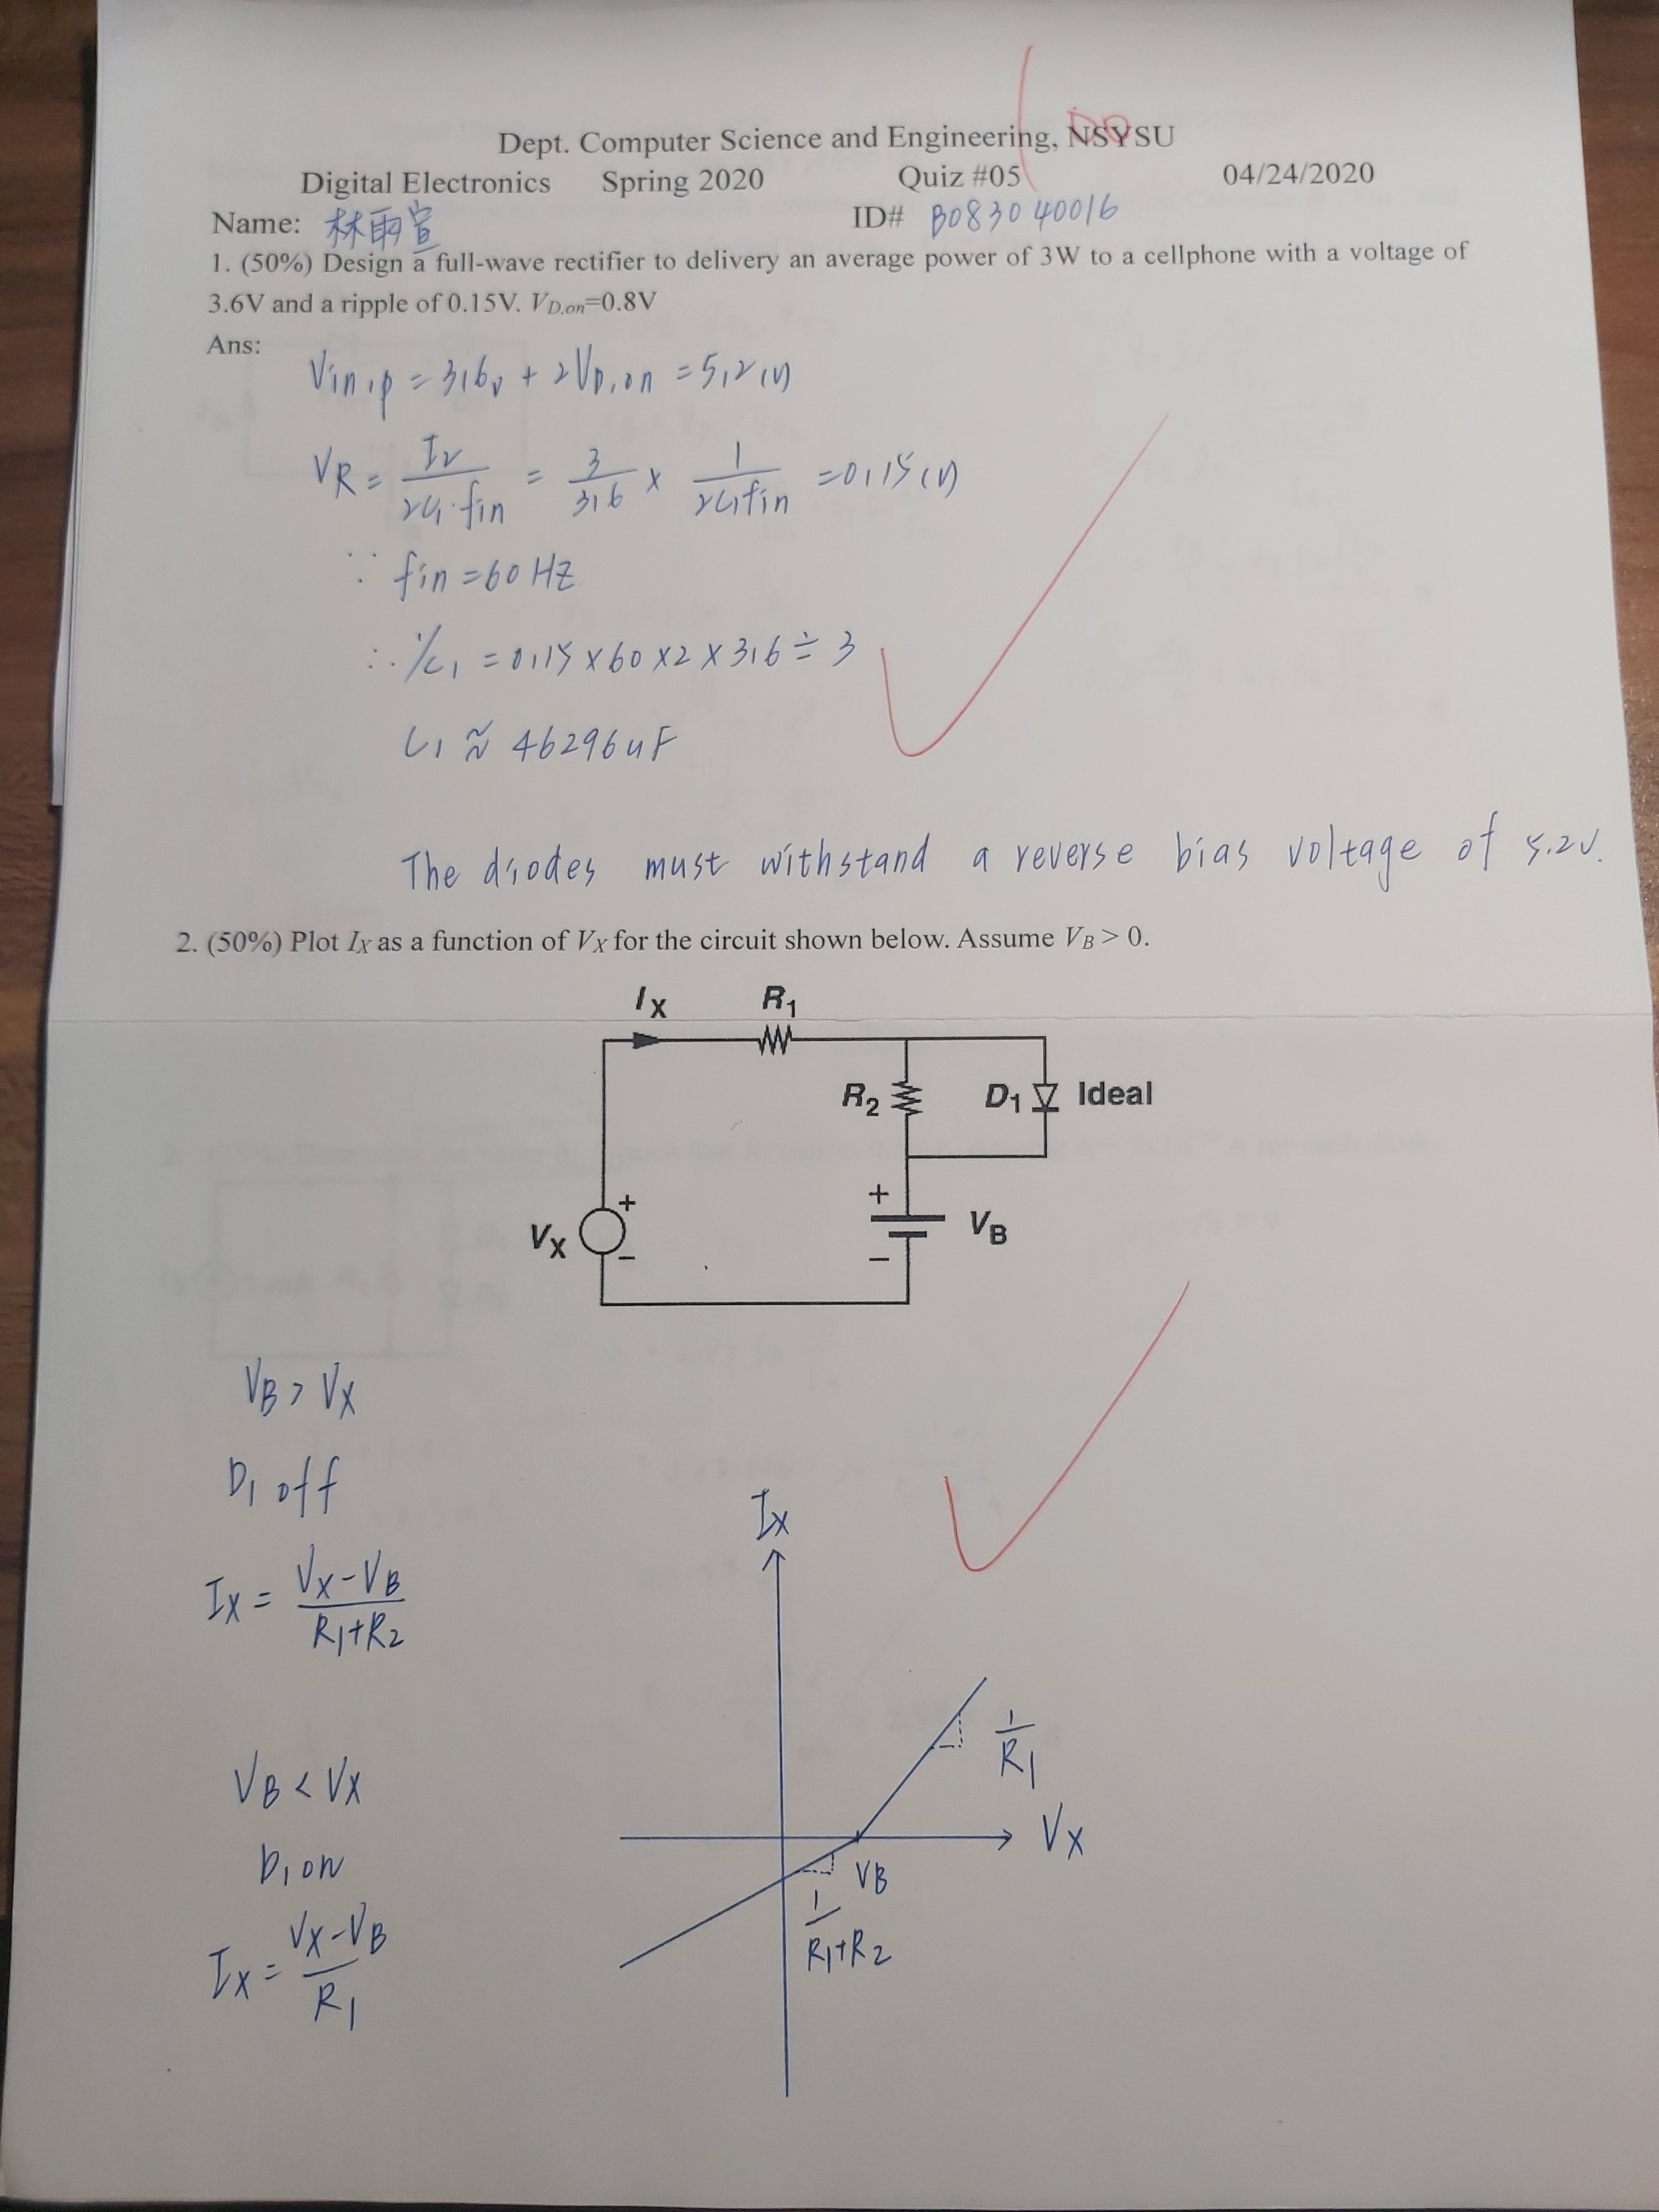 100
Dept. Computer Science and Engineering, NSYSU
Digital Electronics Spring 2020 Quiz #05 04/24/2020
Name: 林雨宣 ID# B083040016
1. (50%) Design a full-wave rectifier to delivery an average power of 3W to a cellphone with a voltage of
3.6V and a ripple of 0.15V. V_D,on=0.8V
Ans:
Vin,p = 3.6v + 2VD,on = 5.2(V)
VR = IL / 2C1·fin = 3/3.6 × 1/2C1fin = 0.15(V)
∵ fin = 60 Hz
∴ 1/C1 = 0.15 × 60 × 2 × 3.6 ÷ 3
C1 ≈ 46296uF
The diodes must withstand a reverse bias voltage of 5.2V.
2. (50%) Plot I_X as a function of V_X for the circuit shown below. Assume V_B > 0.
IX R1
R2 D1 Ideal
+ +
VX VB
− −
VB > VX
D1 off
IX = (VX−VB)/(R1+R2)
VB < VX
D1 on
IX = (VX−VB)/R1
IX
1/R1
VX
VB
1/(R1+R2)